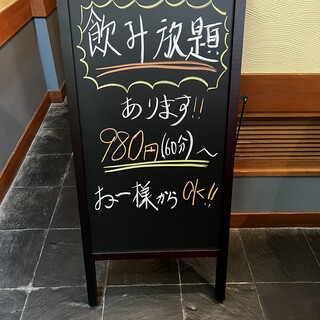 飲み放題
あります!!
980円(60分)〜
お一様から OK!!